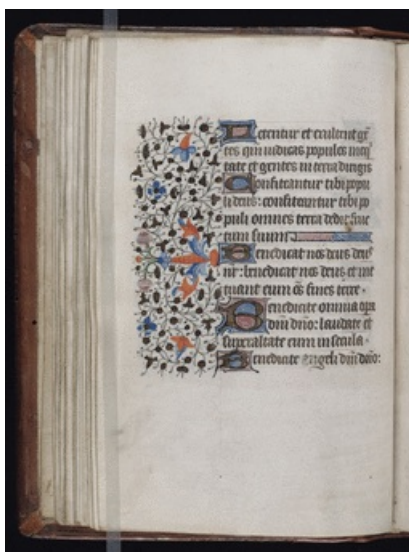 Letentur et exultent gē
tes quī iudicas populos in eq̄
tate et gentes in terra dirigis
Confiteantur tibi popu
li deus: confiteantur tibi po
puli omnes terra dedit fruc
tum suum
Benedicat nos deus deus
nr̄: benedicat nos deus et me
tuant eum oēs fines terre.
Benedicite omnia opa
dn̄i dn̄o: laudate et
superaltate eum in secula.
Benedicite angeli dn̄i dn̄o: